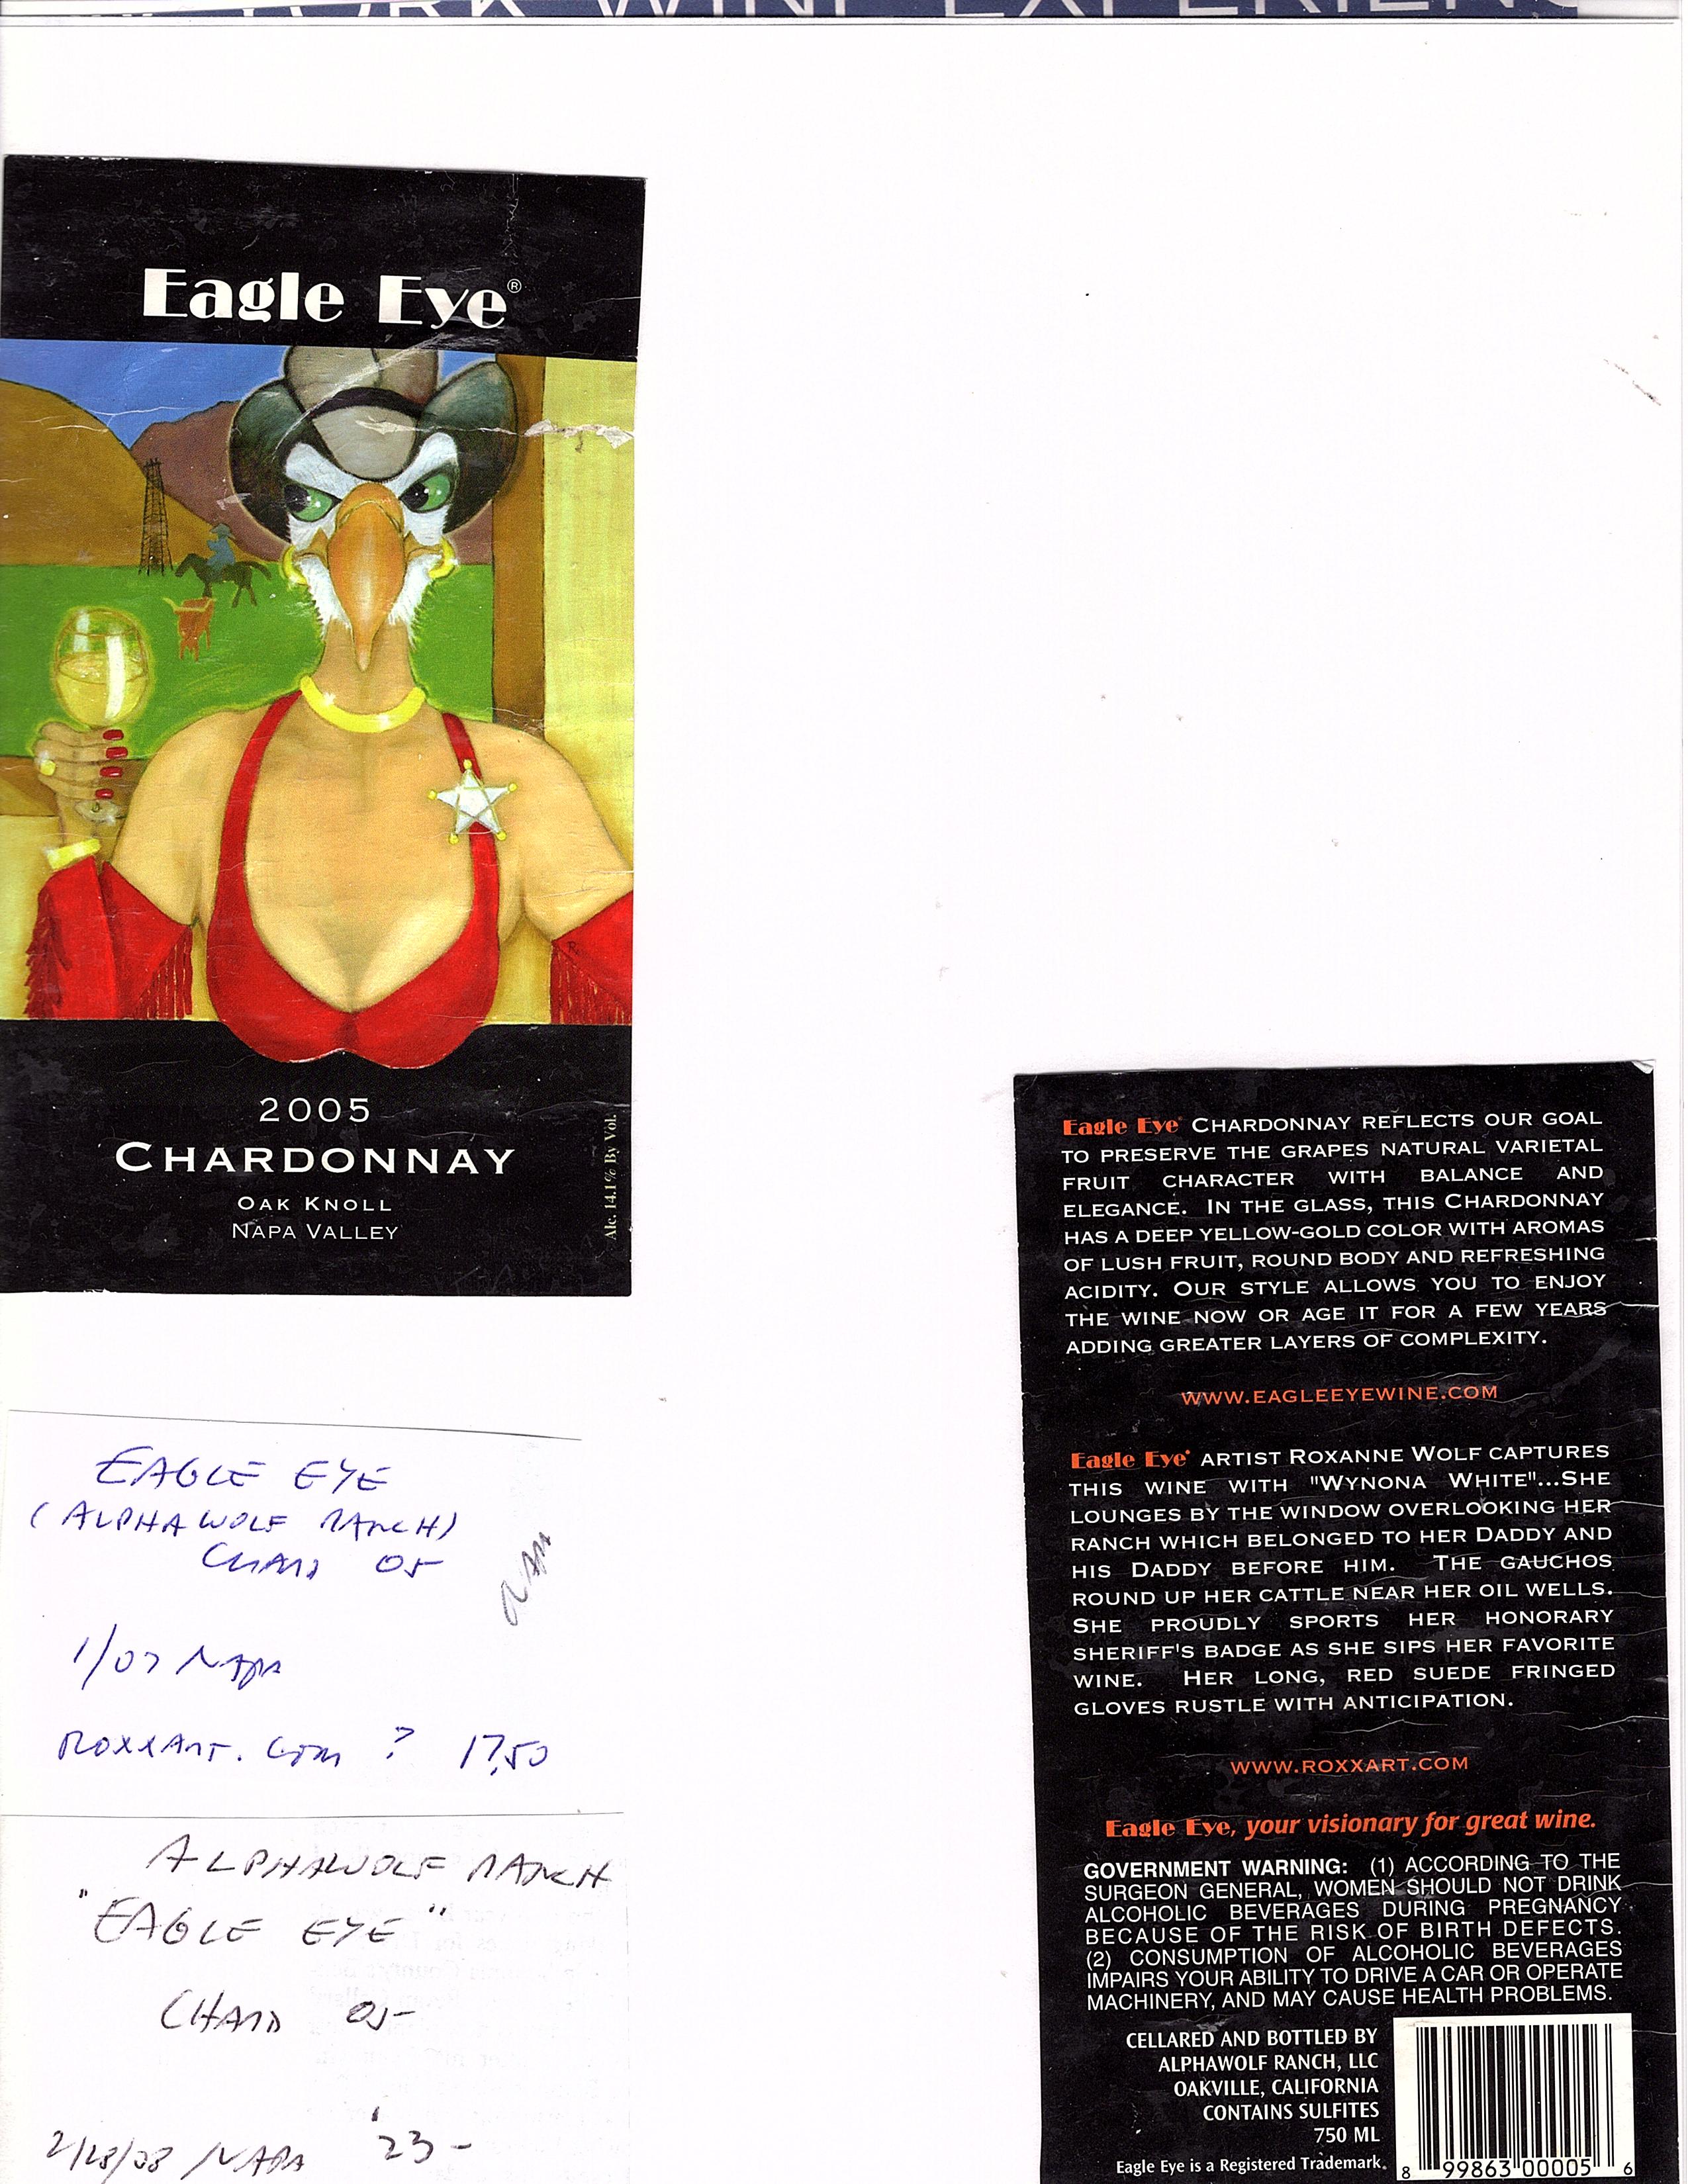 WORK WINE EXPERIENC
Eagle Eye®
2005
CHARDONNAY
OAK KNOLL
NAPA VALLEY
Alc. 14.1% By Vol.
EAGLE EYE
(ALPHAWOLF RANCH)
CHARD 05
1/07 NAPA
ROXXART.COM ? 17.50
ALPHAWOLF RANCH
"EAGLE EYE"
CHARD 05
2/28/08 NAPA 23-
Eagle Eye® CHARDONNAY REFLECTS OUR GOAL
TO PRESERVE THE GRAPES NATURAL VARIETAL
FRUIT CHARACTER WITH BALANCE AND
ELEGANCE. IN THE GLASS, THIS CHARDONNAY
HAS A DEEP YELLOW-GOLD COLOR WITH AROMAS
OF LUSH FRUIT, ROUND BODY AND REFRESHING
ACIDITY. OUR STYLE ALLOWS YOU TO ENJOY
THE WINE NOW OR AGE IT FOR A FEW YEARS
ADDING GREATER LAYERS OF COMPLEXITY.
WWW.EAGLEEYEWINE.COM
Eagle Eye® ARTIST ROXANNE WOLF CAPTURES
THIS WINE WITH "WYNONA WHITE"...SHE
LOUNGES BY THE WINDOW OVERLOOKING HER
RANCH WHICH BELONGED TO HER DADDY AND
HIS DADDY BEFORE HIM. THE GAUCHOS
ROUND UP HER CATTLE NEAR HER OIL WELLS.
SHE PROUDLY SPORTS HER HONORARY
SHERIFF'S BADGE AS SHE SIPS HER FAVORITE
WINE. HER LONG, RED SUEDE FRINGED
GLOVES RUSTLE WITH ANTICIPATION.
WWW.ROXXART.COM
Eagle Eye, your visionary for great wine.
GOVERNMENT WARNING: (1) ACCORDING TO THE
SURGEON GENERAL, WOMEN SHOULD NOT DRINK
ALCOHOLIC BEVERAGES DURING PREGNANCY
BECAUSE OF THE RISK OF BIRTH DEFECTS.
(2) CONSUMPTION OF ALCOHOLIC BEVERAGES
IMPAIRS YOUR ABILITY TO DRIVE A CAR OR OPERATE
MACHINERY, AND MAY CAUSE HEALTH PROBLEMS.
CELLARED AND BOTTLED BY
ALPHAWOLF RANCH, LLC
OAKVILLE, CALIFORNIA
CONTAINS SULFITES
750 ML
Eagle Eye is a Registered Trademark.
8 99863 00005 6